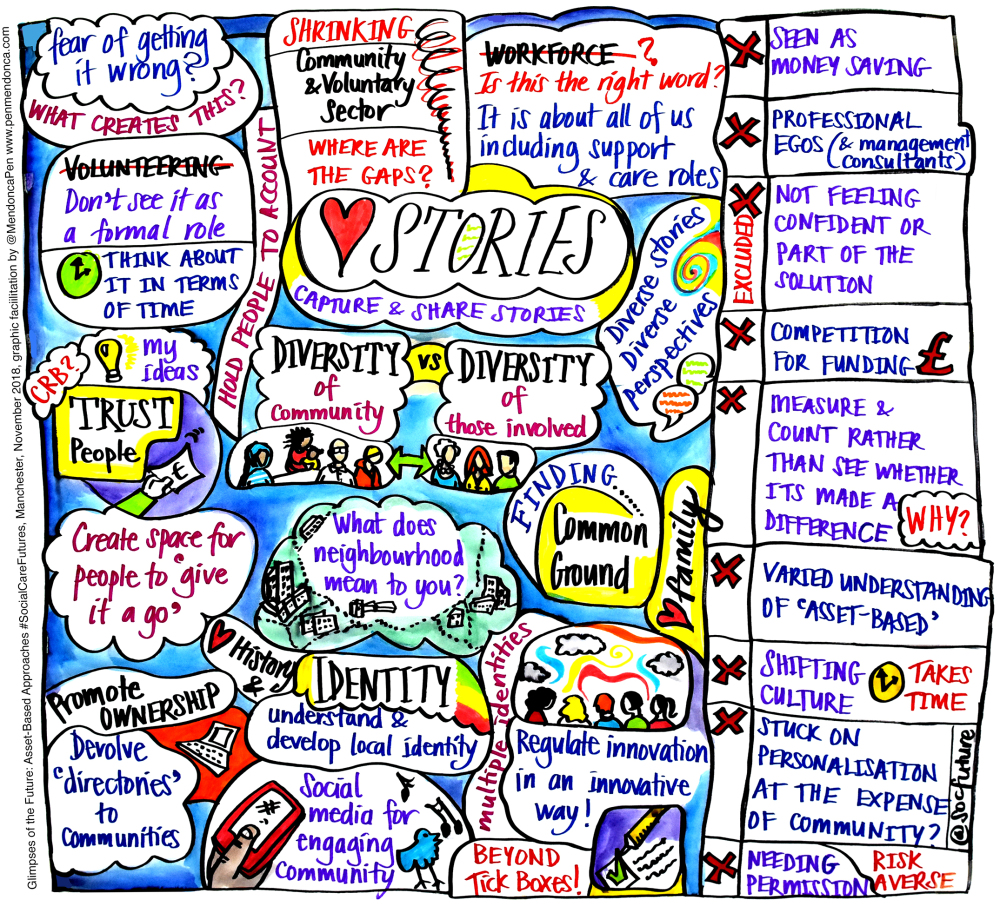 Glimpses of the Future: Asset-Based Approaches #SocialCareFutures, Manchester, November 2018, graphic faciilitation by @MendoncaPen www.penmendonca.com
fear of getting
it wrong?
WHAT CREATES THIS?
VOLUNTEERING
Don't see it as
a formal role
THINK ABOUT
IT IN TERMS
OF TIME
HOLD PEOPLE TO ACCOUNT
SHRINKING
Community
& Voluntary
Sector
WHERE ARE
THE GAPS?
WORKFORCE ?
Is this the right word?
It is about all of us
including support
& care roles
STORIES
CAPTURE & SHARE STORIES
Diverse stories
Diverse
perspectives
CRB?
my
ideas
TRUST
People
£
DIVERSITY
of
Community
VS
DIVERSITY
of
those involved
FINDING....
Common
Ground
family
Create space for
people to 'give
it a go'
What does
neighbourhood
mean to you?
History
&
IDENTITY
understand &
develop local identity
multiple identities
Promote
OWNERSHIP
Devolve
'directories'
to
Communities
#
Social
media for
engaging
community
Regulate innovation
in an innovative
way!
BEYOND
Tick Boxes!
SEEN AS
MONEY SAVING
PROFESSIONAL
EGOS (& management
consultants)
EXCLUDED
NOT FEELING
CONFIDENT OR
PART OF THE
SOLUTION
COMPETITION
FOR FUNDING £
MEASURE &
COUNT RATHER
THAN SEE WHETHER
ITS MADE A
DIFFERENCE
WHY?
VARIED UNDERSTANDING
OF 'ASSET-BASED'
SHIFTING
CULTURE
TAKES
TIME
STUCK ON
PERSONALISATION
AT THE EXPENSE
OF COMMUNITY?
@SocFuture
NEEDING
PERMISSION
RISK
AVERSE